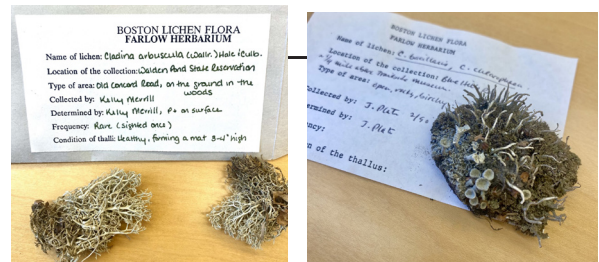 BOSTON LICHEN FLORA
FARLOW HERBARIUM
Name of lichen: Cladina arbuscula (Wallr.) Hale & Culb.
Location of the collection: Walden Pond State Reservation
Type of area: Old Concord Road, on the ground in the
woods
Collected by: Kelly Merrill
Determined by: Kelly Merrill, P+ on surface
Frequency: Rare (sighted once)
Condition of thalli: Healthy, forming a mat 3-4" high
BOSTON LICHEN FLORA
FARLOW HERBARIUM
Name of lichen: C.
Location of the collection: Blue Hills
mile
Type of area: open, rocky,
ollected by: J. Plat 2/50
ermined by: J. Plat
ncy:
n of the thallus: